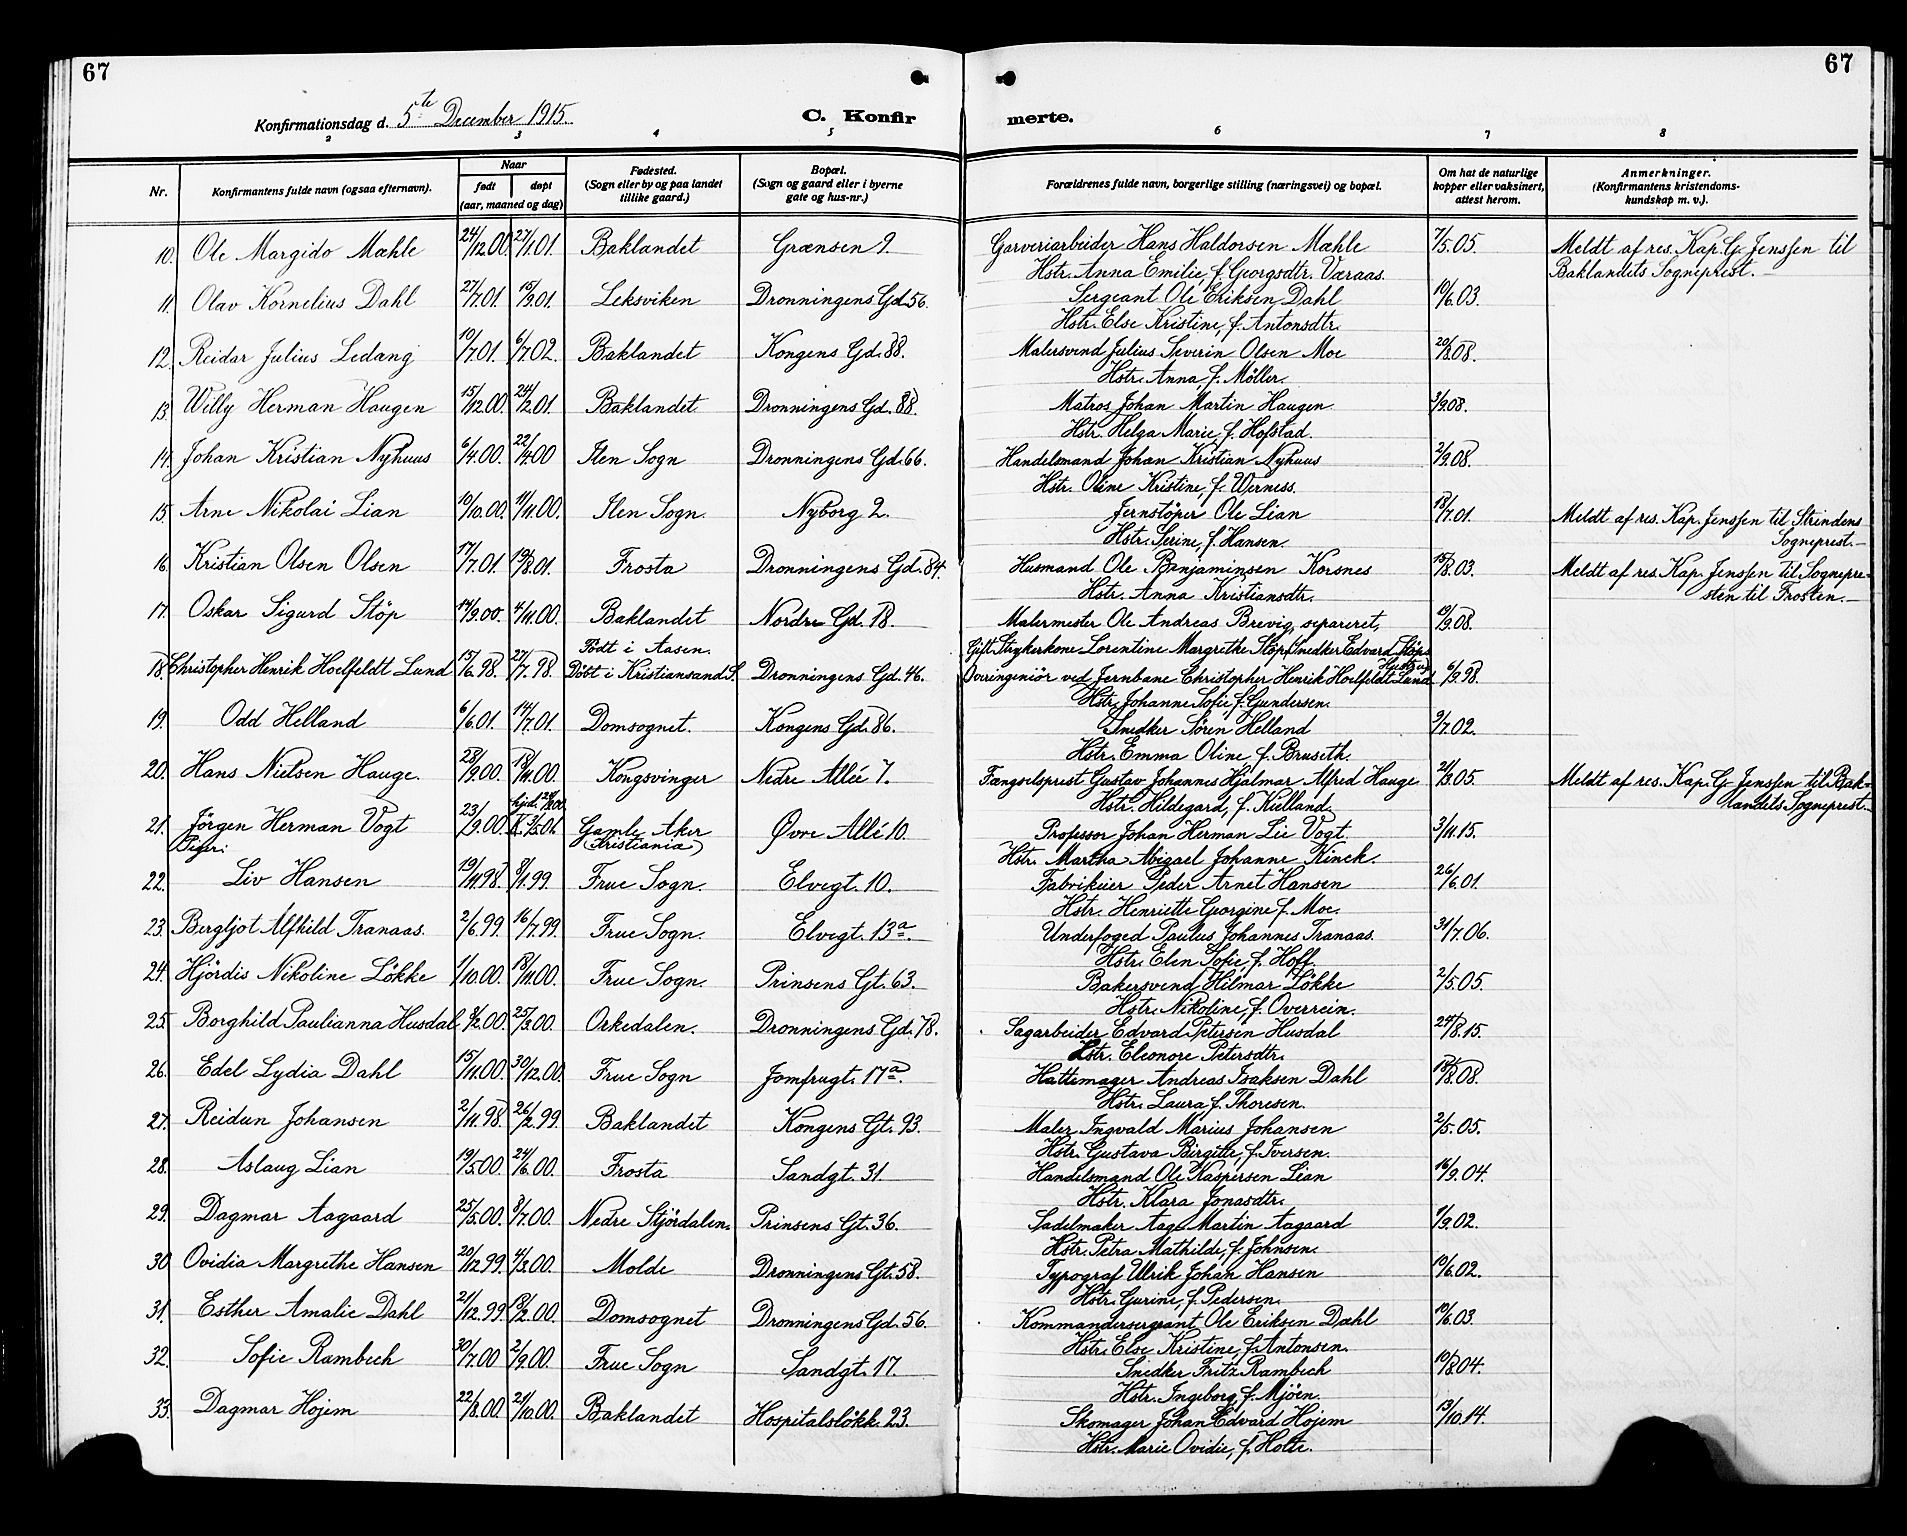 67
67
Konfirmationsdag d. 5te December 1915.
C. Konfirmerte.
2 3 4 5 6 7 8
Nr. Konfirmantens fulde navn (ogsaa efternavn). Naar født døpt (aar, maaned og dag) Fødested. (Sogn eller by og paa landet tillike gaard.) Bopæl. (Sogn og gaard eller i byerne gate og hus-nr.) Forældrenes fulde navn, borgerlige stilling (næringsvei) og bopæl. Om hat de naturlige kopper eller vaksinert, attest herom. Anmerkninger. (Konfirmantens kristendoms-kundskap m. v.).
10. Ole Margido Mæhle 24/12.00. 27/1.01. Baklandet Grænsen 9. Garveriarbeider Hans Haldorsen Mæhle 7/5.05. Meldt af res. Kap. G. Jenssen til
Hstr. Anna Emilie, f. Georgsdtr. Væraas. Baklandets Sogneprest.
11. Olav Kornelius Dahl 27/7.01. 15/9.01. Leksviken Dronningens Gd. 56. Sergeant Ole Eriksen Dahl 10/6.03.
Hstr. Else Kristine, f. Antonsdtr.
12. Reidar Julius Ledang 10/7.01. 6/7.02. Baklandet Kongens Gd. 88. Malersvend Julius Severin Olsen Moe 20/8.08.
Hstr. Anna, f. Möller.
13. Willy Herman Haugen 15/12.00. 24/2.01. Baklandet Dronningens Gd. 88. Matros Johan Martin Haugen 3/9.08.
Hstr. Helga Marie, f. Hofstad.
14. Johan Kristian Nyhuus 6/4.00. 22/4.00 Ilen Sogn Dronningens Gd. 66. Handelsmand Johan Kristian Nyhuus 2/9.08.
Hstr. Oline Kristine, f. Werness.
15. Arne Nikolai Lian 10/10.00. 11/11.00. Ilen Sogn. Nyborg 2. Jernstöper Ole Lian 18/7.01. Meldt af res. Kap. Jenssen til Strindens
Hstr. Serine, f. Hansen. Sogneprest.—
16. Kristian Olsen Olsen 17/7.01. 18/8.01. Frosta Dronningens Gd. 84. Husmand Ole Benjaminsen Korsnes 15/8.03. Meldt af res. Kap. Jenssen til Sognepre-
Hstr. Anna Kristiansdtr. sten til Frosten.—
17. Oskar Sigurd Stöp 14/9.00. 4/11.00. Baklandet Nordre Gd. 18. Malermester Ole Andreas Brevig, separeret, 19/9.08.
Födt i Aasen. Gift. Strykerkone Lorentine Margrethe Stöp, Snedker Edvard Stöps Hustru
18. Christopher Henrik Hoelfeldt Lund 15/6.98. 27/7.98. Döbt i Kristiansand S. Dronningens Gd. 46. Overingeniör ved Jernbane Christopher Henrik Hoelfeldt Lund 6/9.98.
Hstr. Johanne Sofie f. Gundersen.
19. Odd Helland 6/6.01. 14/7.01. Domsognet. Kongens Gd. 86. Snedker Sören Helland 9/7.02.
Hstr. Emma Oline f. Bruseth.
20. Hans Nielsen Hauge. 28/9.00. 18/11.00. Kongsvinger Nedre Allée 7. Fængselsprest Gustav Johannes Hjalmar Alfred Hauge 21/3.05. Meldt af res. Kap. G. Jenssen til Bak-
Hstr. Hildegard, f. Kielland. landets Sogneprest.—
21. Jörgen Herman Vogt 23/9.00. K. 3/5.01. Gamle Aker (Kristiania) Øvre Allé 10. Professor Johan Herman Lie Vogt 3/11.15.
Piger: Hstr. Martha Abigael Johanne Kinck.
22. Liv Hansen 19/11.98. 8/1.99. Frue Sogn. Elvegt. 10. Fabrikeier Peder Arnet Hansen 26/6.01.
Hstr. Henriette Georgine f. Moe.
23. Bergljot Alfhild Tranaas. 2/6.99. 16/7.99. Frue Sogn. Elvegt. 13a. Underfoged Paulus Johannes Tranaas. 31/7.06.
Hstr. Elen Sofie, f. Hoff.
24. Hjördis Nikoline Lökke 1/10.00. 18/11.00. Frue Sogn. Prinsens Gt. 63. Bakersvend Hilmar Lökke 2/5.05.
Hstr. Nikoline, f. Overrein.
25. Borghild Paulianna Husdal 8/2.00. 25/3.00. Orkedalen. Dronningens Gd. 78. Sagarbeider Edvard Petersen Husdal 24/8.15.
Hstr. Eleonore Petersdtr.
26. Edel Lydia Dahl 15/11.00. 30/12.00. Frue Sogn Jomfrugt. 17a. Hattemager Andreas Isaksen Dahl 18/8.08.
Hstr. Laura, f. Thoresen.
27. Reidun Johansen 2/11.98. 26/2.99. Baklandet Kongens Gt. 93. Maler Ingvald Marius Johansen 2/5.05.
Hstr. Gustava Birgitte, f. Iversen.
28. Aslaug Lian 19/5.00. 24/6.00. Frosta Sandgt. 31 Handelsmand Ole Kaspersen Lian 16/9.04.
Hstr. Klara Jonasdtr.
29. Dagmar Aagaard 25/5.00. 8/7.00. Nedre Stjördalen. Prinsens Gt. 36. Sadelmaker Aage Martin Aagaard 1/9.02.
Hstr. Petra Mathilde, f. Johnsen.
30. Ovidia Margrethe Hansen 20/12.99. 4/3.00. Molde Dronningens Gt. 58. Typograf Ulrik Johan Hansen 10/6.02.
Hstr. Gurine, f. Pedersen.
31. Esther Amalie Dahl 21/12.99. 18/2.00. Domsognet Dronningens Gd. 56. Kommandersergeant Ole Eriksen Dahl 10/6.03.
Hstr. Else Kristine, f. Antonsen.
32. Sofie Rambech 30/7.00 2/9.00. Frue Sogn Sandgt. 17. Snedker Fritz Rambech 10/8.04.
Hstr. Ingeborg, f. Mjöen.
33. Dagmar Hojem 22/8.00. 21/10.00. Baklandet Hospitalslökk. 23. Skomager Johan Edvard Hojem 13/10.14.
Hstr. Marie Ovidie, f. Holte.